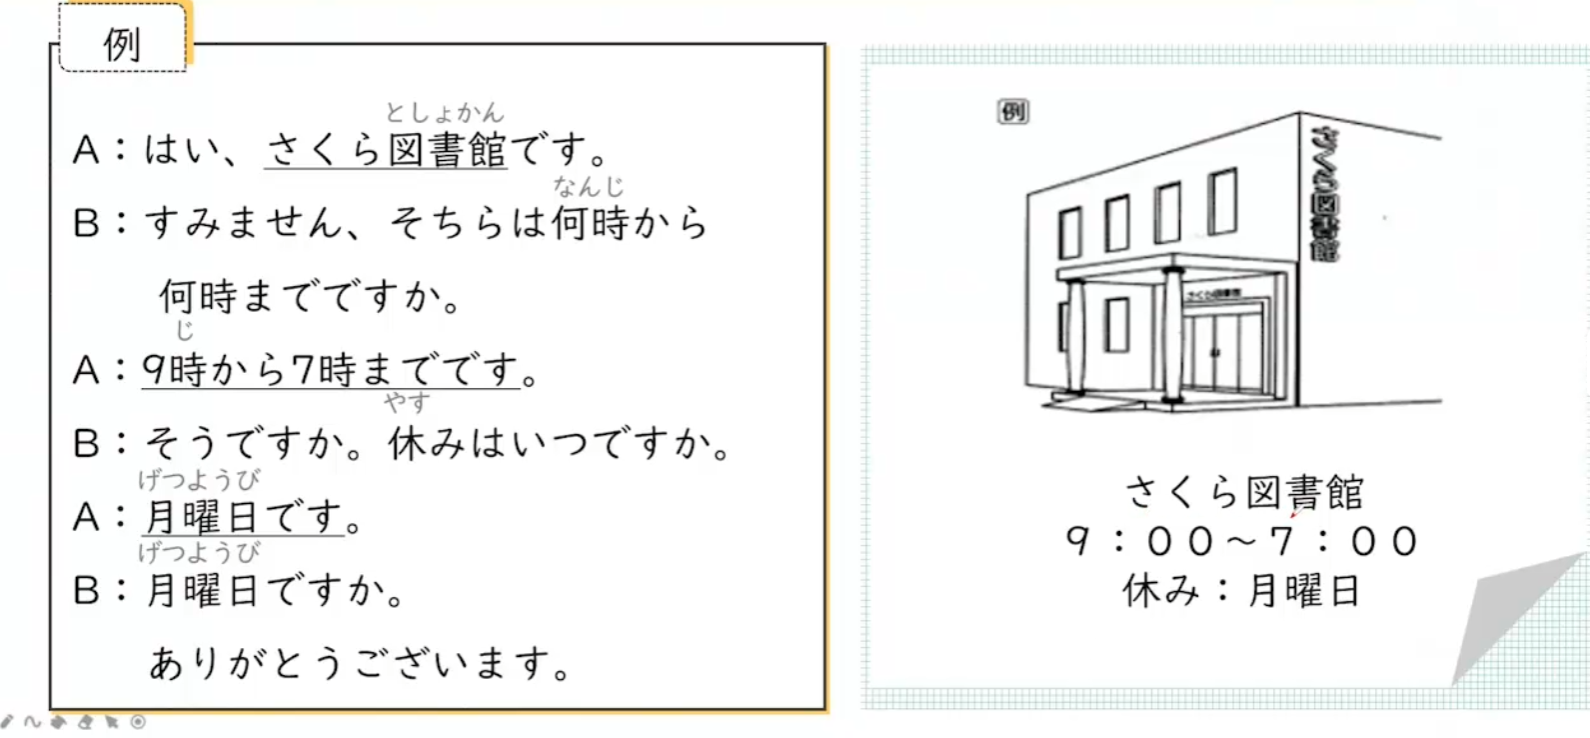 例
としょかん
A：はい、さくら図書館です。
なんじ
B：すみません、そちらは何時から
何時までですか。
じ
A：9時から7時までです。
やす
B：そうですか。休みはいつですか。
げつようび
A：月曜日です。
げつようび
B：月曜日ですか。
ありがとうございます。
例
さくら図書館
さくら図書館
さくら図書館
９：００～７：００
休み：月曜日